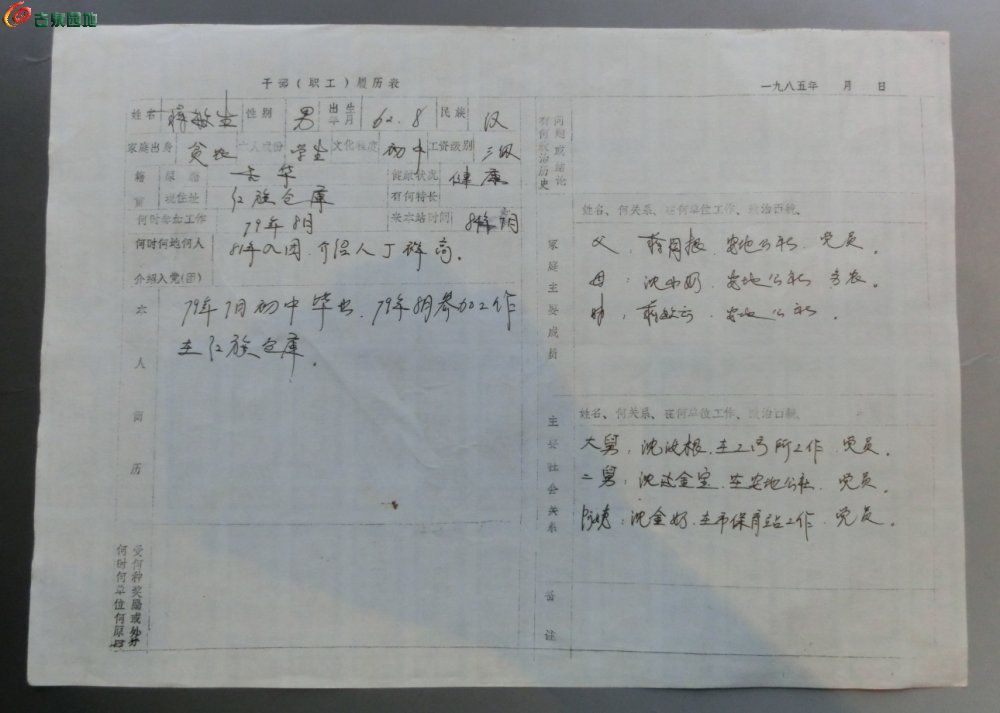 古泉园地
干部（职工）履历表
一九八五年 月 日
姓名 蒋敏生 性别 男 出生年月 62.8 民族 汉
家庭出身 贫农 本人成份 学生 文化程度 初中 工资级别 三级
籍贯 原籍 金华 健康状况 健康
现住址 红旗仓库 有何特长
何时参加工作 79年8月 来本站时间
何时何地何人介绍入党(团) 81年入团，介绍人丁 高。
本人简历
79年7月初中毕业，79年8月参加工作
在红旗仓库。
受何种奖励或处分
何时何单位何原因
有何政治历史问题 或结论
家庭主要成员
姓名、何关系、在何单位工作、政治面貌。
父：蒋 根 安地公社，党员。
母：沈 奶，安地公社 务农。
妹：蒋敏 ，安地公社。
主要社会关系
姓名、何关系、在何单位工作、政治面貌。
大舅：沈 根，在工商所工作，党员。
二舅：沈 金宝 在安地公社，党员。
阿姨：沈金奶，在市保育站工作，党员。
备注